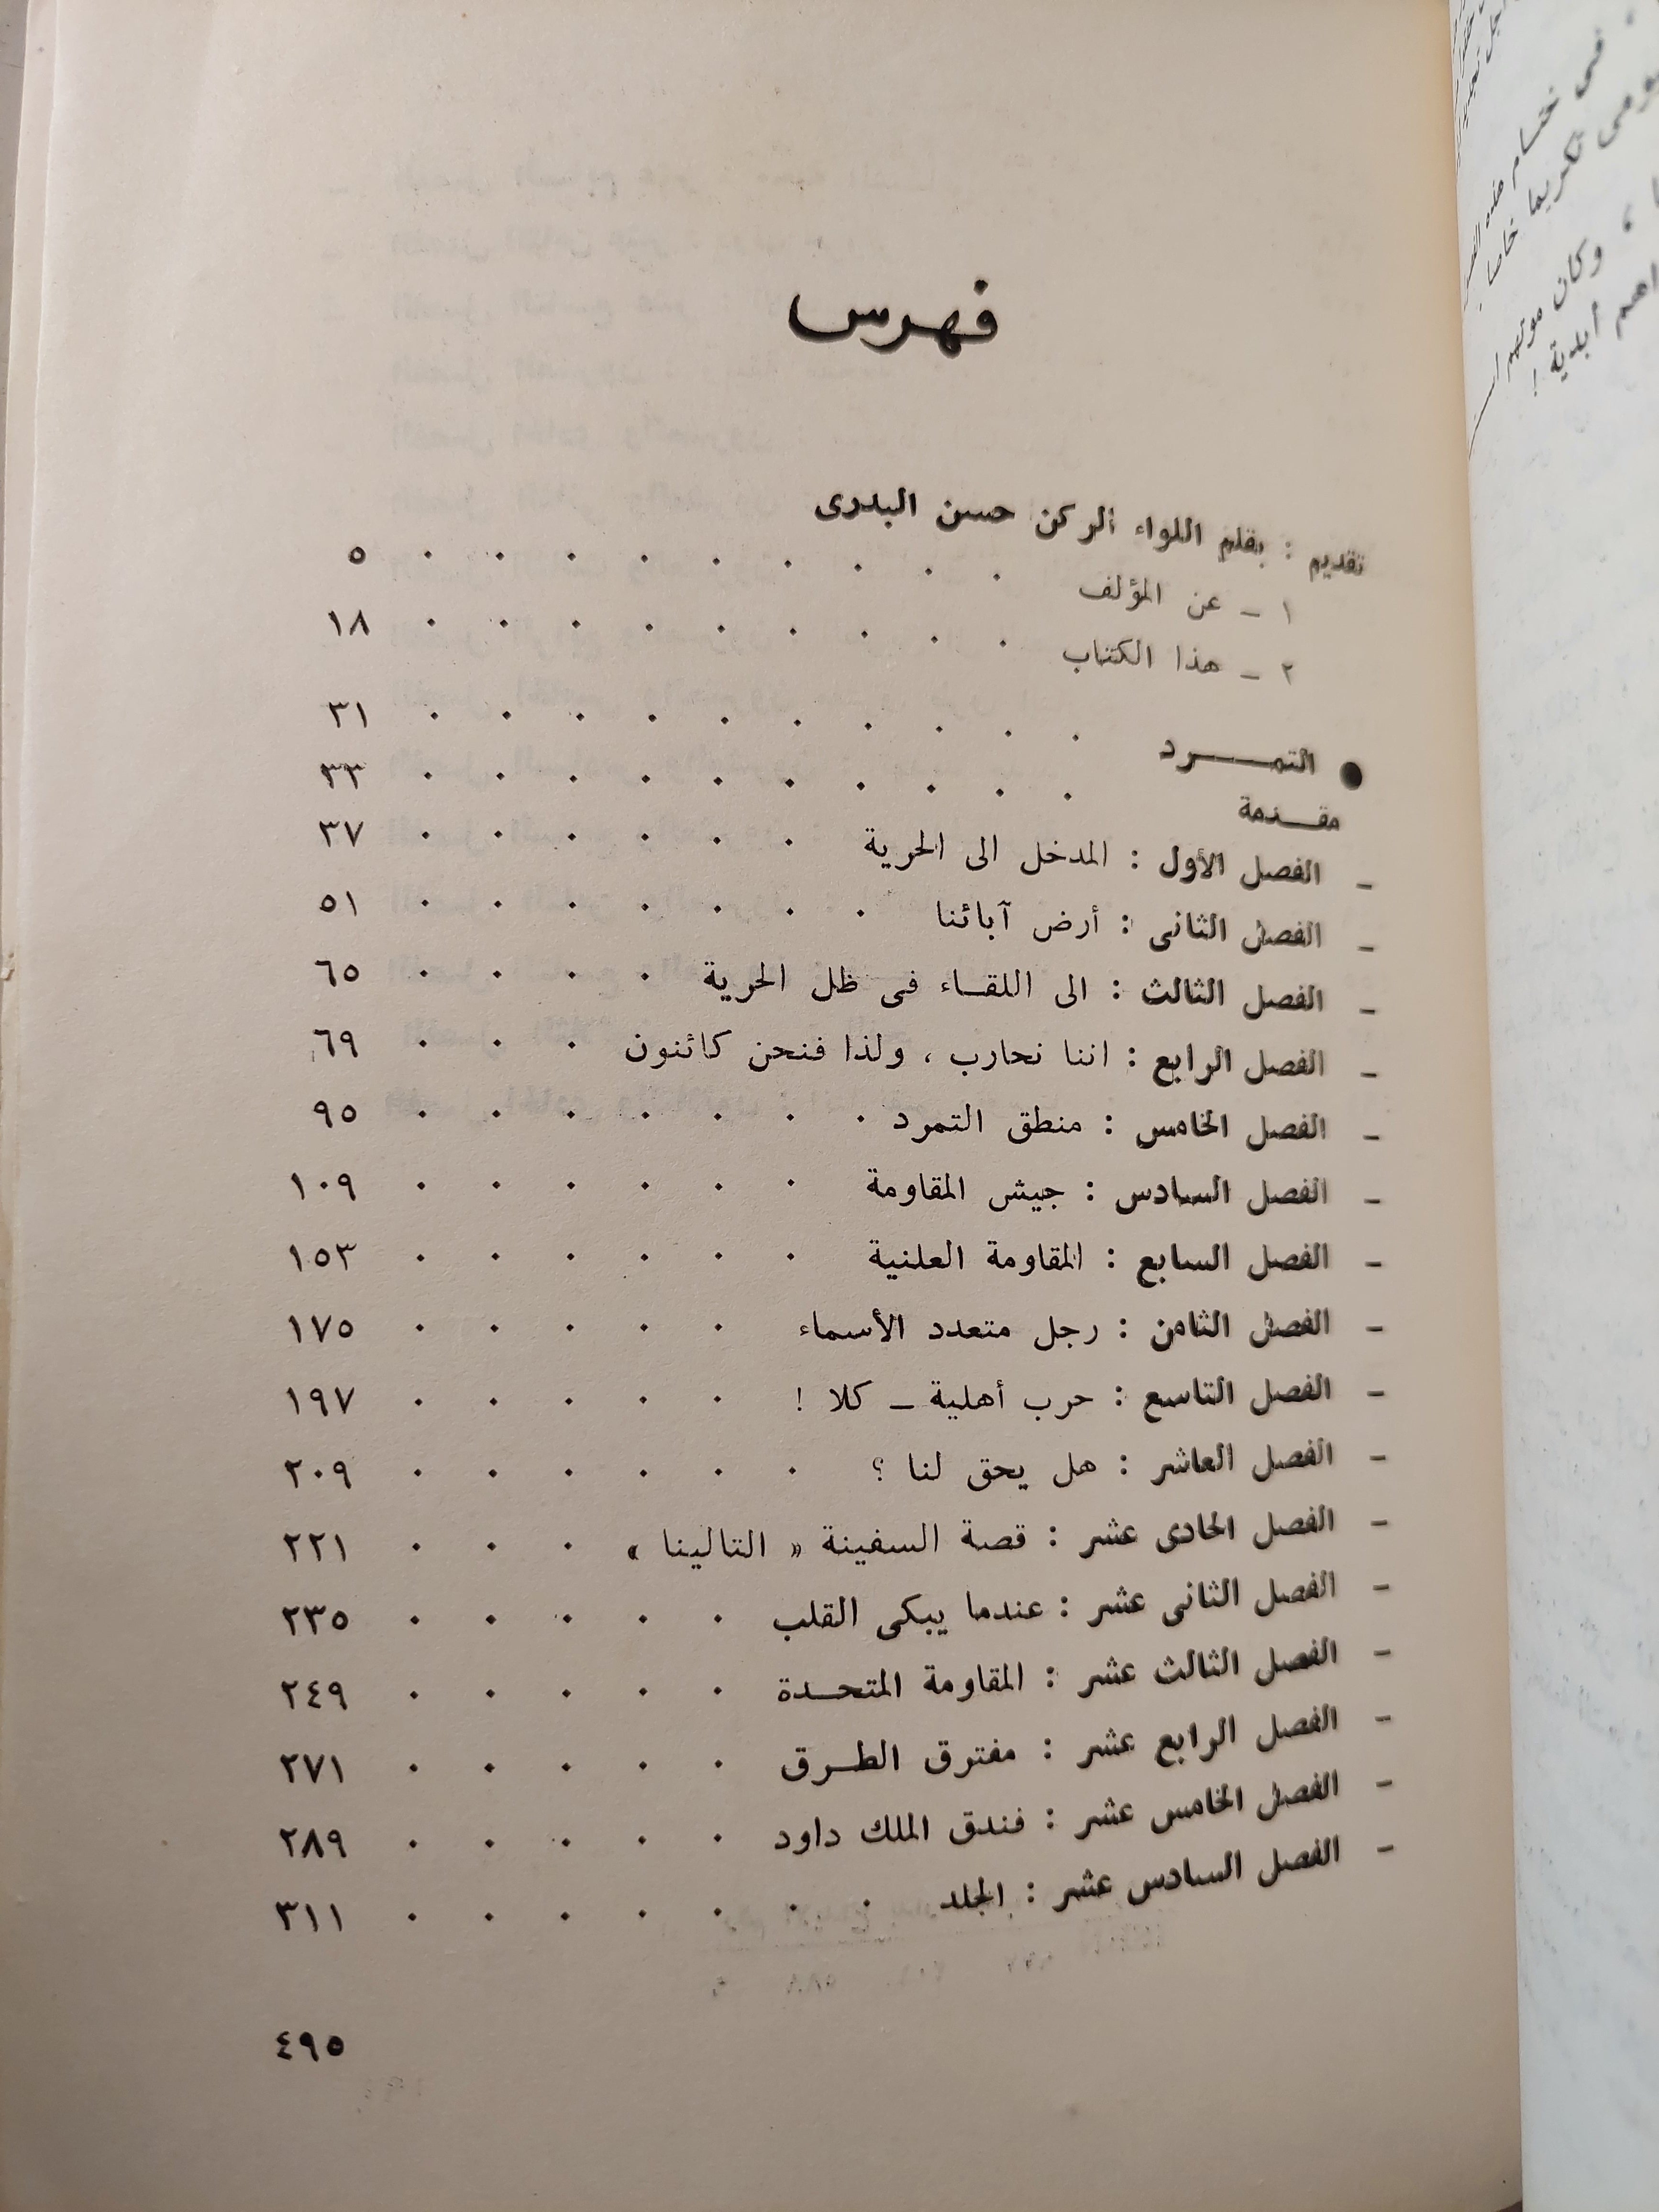 فهرس
تقديم : بقلم اللواء الركن حسن البدرى
١ ــ عن المؤلف . . . . . . . . . ٥
٢ ــ هذا الكتاب . . . . . . . . . ١٨
● التمـــرد . . . . . . . . . . ٣١
مقـدمة . . . . . . . . . . ٣٣
ــ الفصل الأول : المدخل الى الحرية . . . . . . ٣٧
ــ الفصل الثانى : أرض آبائنا . . . . . . . ٥١
ــ الفصل الثالث : الى اللقـاء فى ظل الحرية . . . . ٦٥
ــ الفصل الرابع : اننا نحارب ، ولذا فنحن كائنون . . . ٦٩
ــ الفصل الخامس : منطق التمرد . . . . . . . ٩٥
ــ الفصل السادس : جيش المقاومة . . . . . . ١٠٩
ــ الفصل السابع : المقاومة العلنية . . . . . . ١٥٣
ــ الفصل الثامن : رجل متعدد الأسماء . . . . . ١٧٥
ــ الفصل التاسع : حرب أهلية ــ كلا ! . . . . . ١٩٧
ــ الفصل العاشر : هل يحق لنا ؟ . . . . . . ٢٠٩
ــ الفصل الحادى عشر : قصة السفينة « التالينا » . . . ٢٢١
ــ الفصل الثانى عشر : عندما يبكى القلب . . . . . ٢٣٥
ــ الفصل الثالث عشر : المقاومة المتحـدة . . . . . ٢٤٩
ــ الفصل الرابع عشر : مفترق الطـرق . . . . . ٢٧١
ــ الفصل الخامس عشر : فندق الملك داود . . . . . ٢٨٩
ــ الفصل السادس عشر : الجلد . . . . . . . ٣١١
٤٩٥
فى ختـام هذه
تكريما خاصا
، وكان موتهم
أبدية !